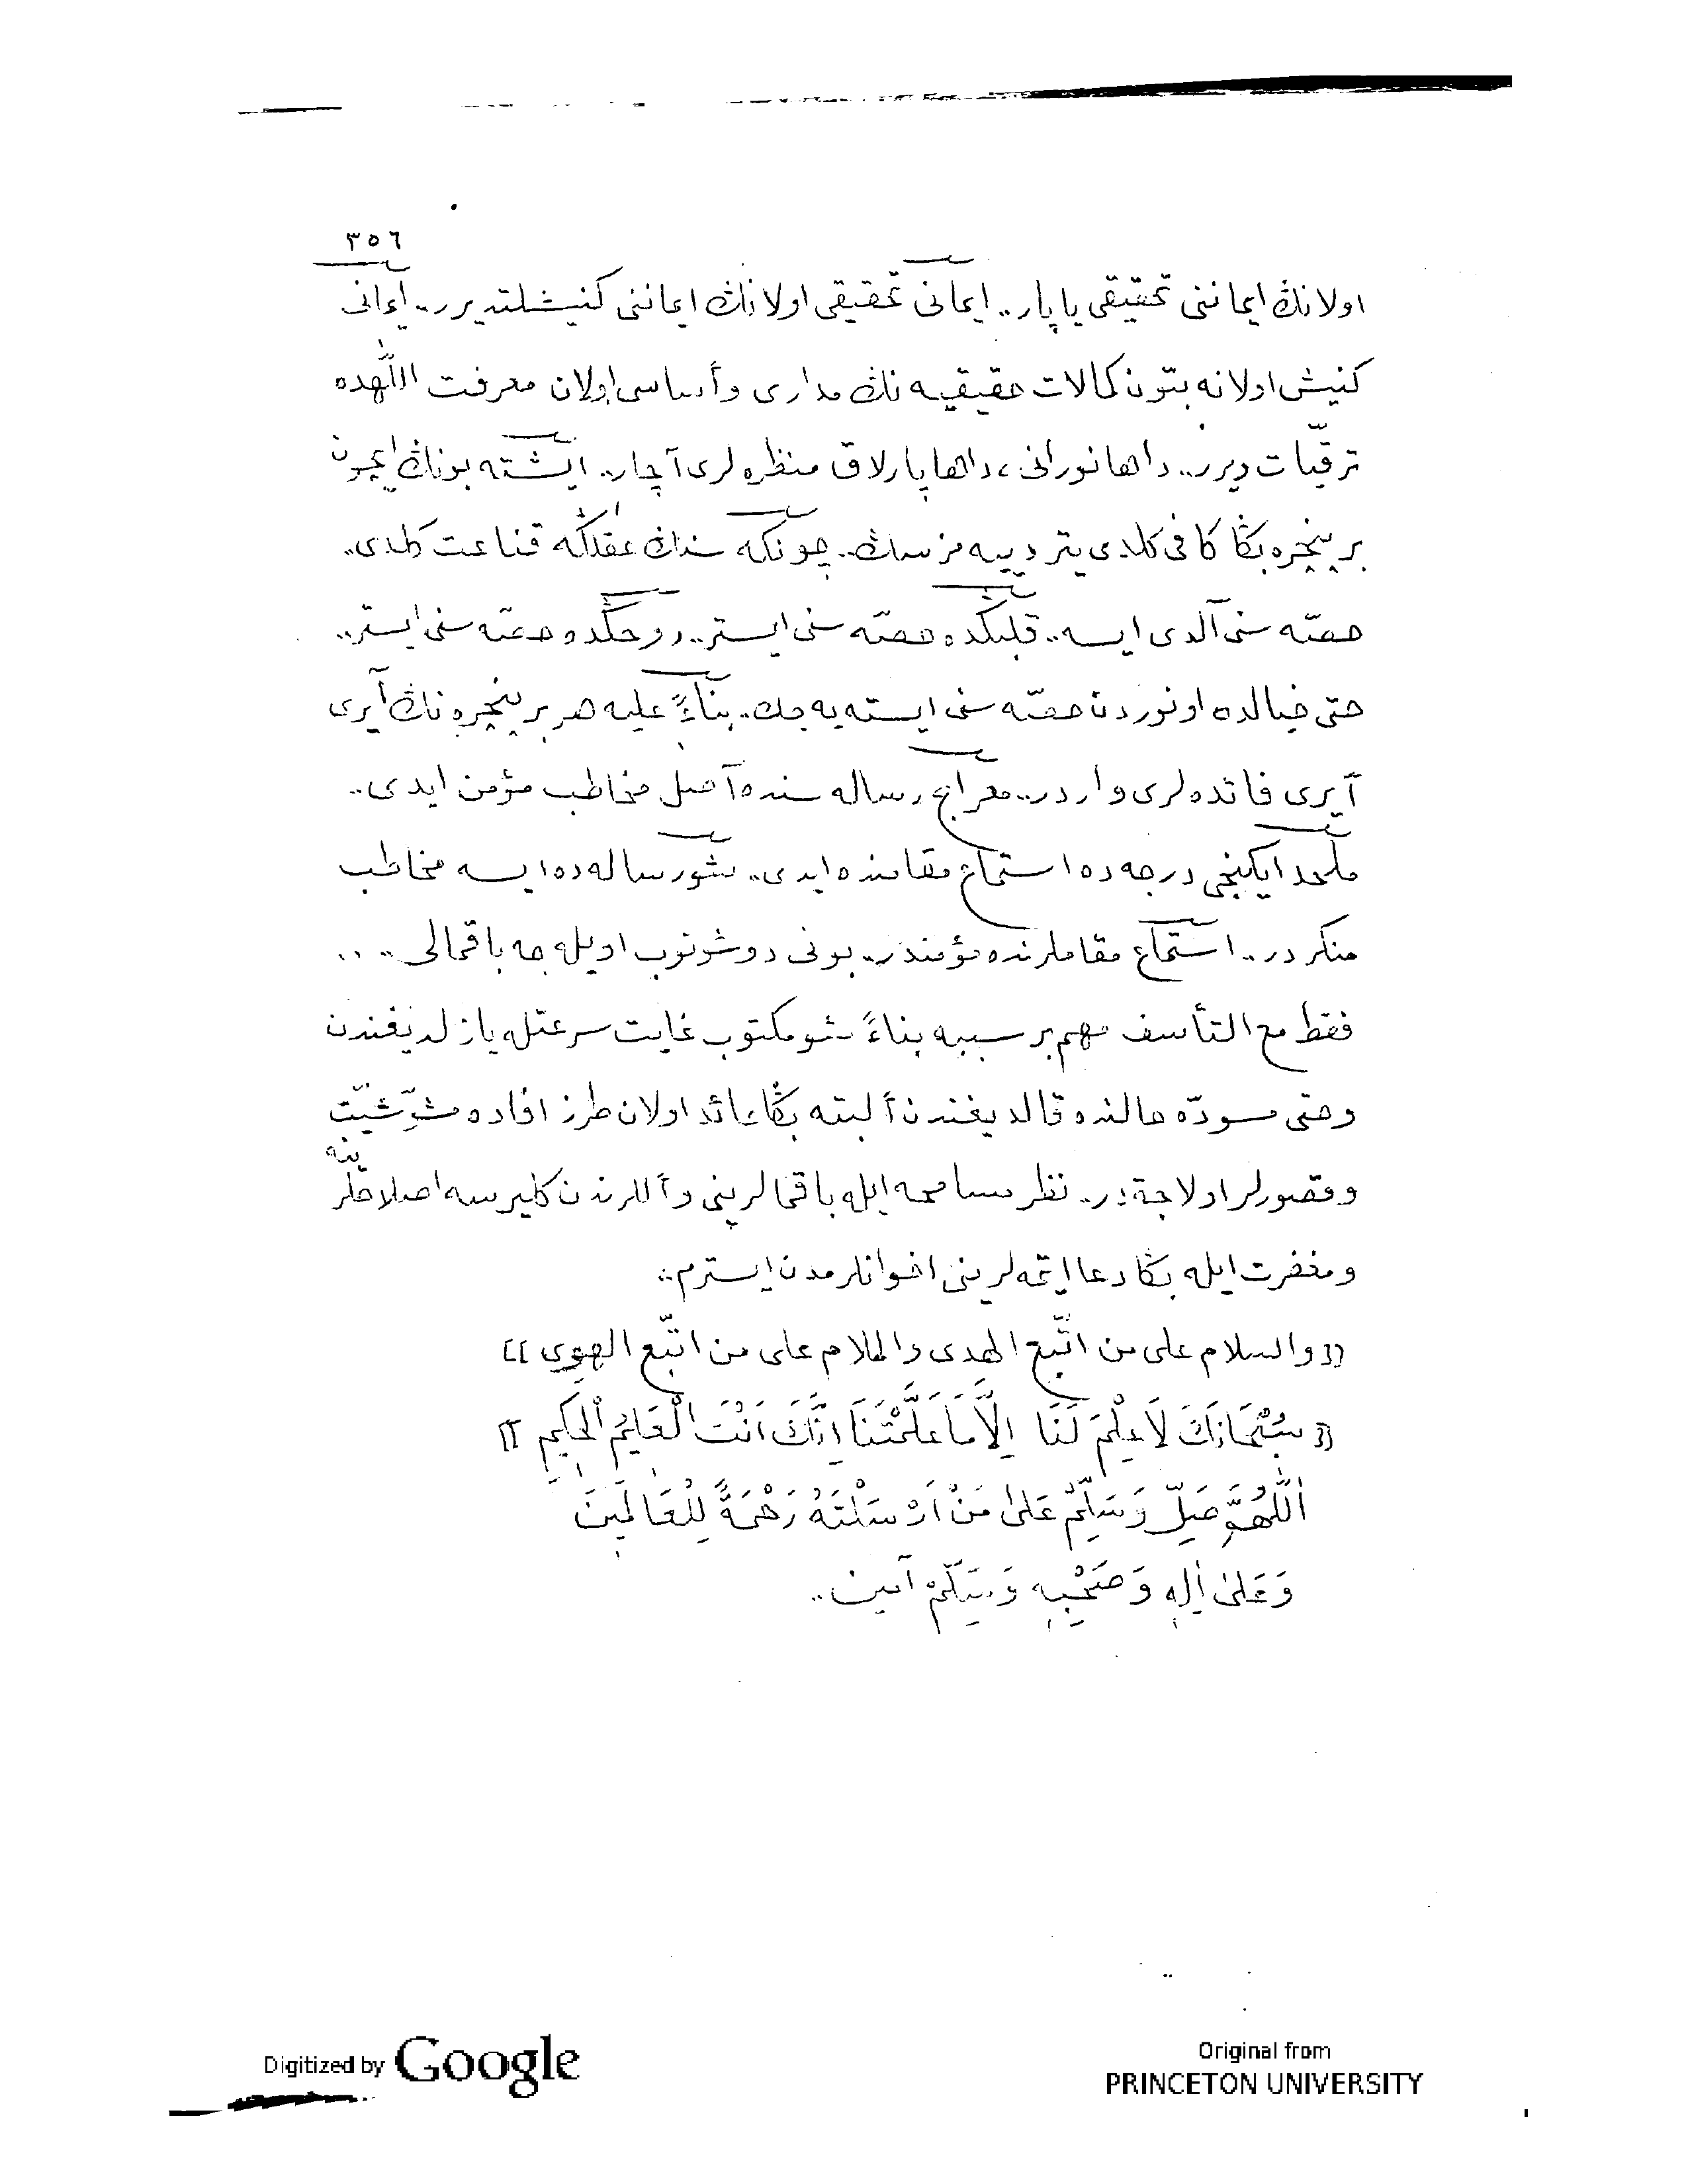 ٣٥٦
اولانڭ ايماننى تحقيقى ياپار.. ايمانى تحقيقى اولانڭ ايماننى كنيشلتديرر.. ايمانى
كنيش اولانه بتون كمالات حقيقيه نڭ مدارى وأساسى اولان معرفت اللّٰهده
ترقّيات ويرر.. داها نورانى، داها پارلاق منظره لرى آچار.. ايشته بونڭ ايچون
بر پنجره بڭا كافى كلدى يتر دييه مزسڭ.. چونكه سنڭ عقلڭه قناعت كلدى..
حصّه سنى آلدى ايسه.. قلبڭده حصّه سنى ايستر.. روحڭده حصّه سنى ايستر..
حتى خيالده او نوردن حصّه سنى ايسته يه جك.. بناءً عليه هر بر پنجره نڭ آيرى
آيرى فائده لرى واردر.. معراج رساله سنده آصل مخاطب مؤمن ايدى..
ملحد ايكنجى درجه ده استماع مقامنده ايدى.. شو رساله ده ايسه مخاطب
منكر در.. استماع مقاملرنده مؤمندر.. بونى دوشونوب اويله جه باقمالى....
فقط مع التأسف مهم بر سببه بناءً شو مكتوب غايت سرعتله يازلديغندن
وحتى مسودّه حالنده قالديغندن ألبته بڭا عائد اولان طرز افاده ده مشوّشيّت
وقصورلر اولاجقدر.. نظر مسامحه ايله باقمالرينى وأللرندن كليرسه اصلاحلرينه
ومغفرت ايله بڭا دعا ايتمه لرينى اخوانلرمدن ايسترم..
((والسلام على من اتّبع الهدى والملام على من اتّبع الهوى))
((سُبْحَانَكَ لَا عِلْمَ لَنَا اِلَّا مَا عَلَّمْتَنَا اِنَّكَ اَنْتَ الْعَلِيمُ الْحَكِيمُ))
اَللّٰهُمَّ صَلِّ وَسَلِّمْ عَلٰى مَنْ اَرْسَلْتَهُ رَحْمَةً لِلْعَالَمِينَ
وَعَلٰى اٰلِهِ وَصَحْبِهِ وَسَلِّمْ آمين..
Digitized by Google
Original from
PRINCETON UNIVERSITY